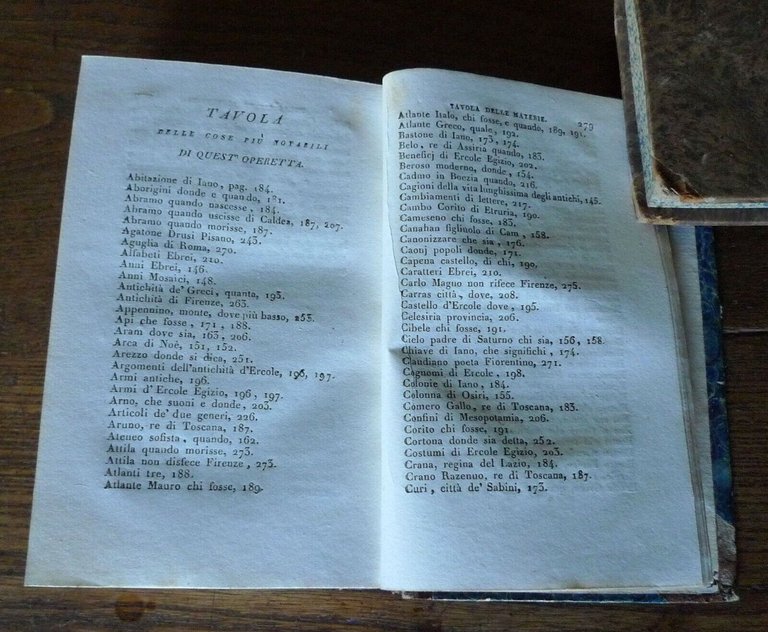 TAVOLA
DELLE COSE PIÙ NOTABILI
DI QUEST' OPERETTA.
Abitazione di Iano, pag. 184.
Aborigini donde e quando, 181.
Abramo quando nascesse, 184.
Abramo quando uscisse di Caldea, 187, 207.
Abramo quando morisse, 187.
Agatone Drusi Pisano, 243.
Aguglia di Roma, 270.
Alfabeti Ebrei, 210.
Anni Ebrei, 146.
Anni Mosaici, 148.
Antichità de' Greci, quanta, 193.
Antichità di Firenze, 263.
Appennino, monte, dove più basso, 253.
Api che fosse, 171, 188.
Aram dove sia, 163, 206.
Arca di Noè, 151, 152.
Arezzo donde si dica, 251.
Argomenti dell'antichità d'Ercole, 196, 197.
Armi antiche, 196.
Armi d'Ercole Egizio, 196, 197.
Arno, che suoni e donde, 203.
Articoli de' due generi, 226.
Aruno, re di Toscana, 187.
Ateneo sofista, quando, 162.
Attila quando morisse, 273.
Attila non disfece Firenze, 273.
Atlanti tre, 188.
Atlante Mauro chi fosse, 189.
TAVOLA DELLE MATERIE. 279
Atlante Italo, chi fosse, e quando, 189, 191.
Atlante Greco, quale, 192.
Bastone di Iano, 173, 174.
Belo, re di Assiria quando, 183.
Beneficj di Ercole Egizio, 202.
Beroso moderno, donde, 154.
Cadmo in Boezia quando, 216.
Cagioni della vita lunghissima degli antichi, 145.
Cambiamenti di lettere, 217.
Cambo Corito di Etruria, 190.
Cameseno chi fosse, 183.
Canahan figliuolo di Cam, 158.
Canonizzare che sia, 176.
Caonj popoli donde, 171.
Capena castello, di chi, 190.
Caratteri Ebrei, 210.
Carlo Magno non rifece Firenze, 275.
Carras città, dove, 208.
Castello d'Ercole dove, 195.
Celesiria provincia, 206.
Cibele chi fosse, 191.
Cielo padre di Saturno chi sia, 156, 158.
Chiave di Iano, che significhi, 174.
Claudiano poeta Fiorentino, 271.
Cognomi di Ercole, 198.
Colonie di Iano, 184.
Colonna di Osiri, 155.
Comero Gallo, re di Toscana, 183.
Confini di Mesopotamia, 206.
Corito chi fosse, 191.
Cortona donde sia detta, 252.
Costumi di Ercole Egizio, 203.
Crana, regina del Lazio, 184.
Crano Razenuo, re di Toscana, 187.
Curi, città de' Sabini, 173.